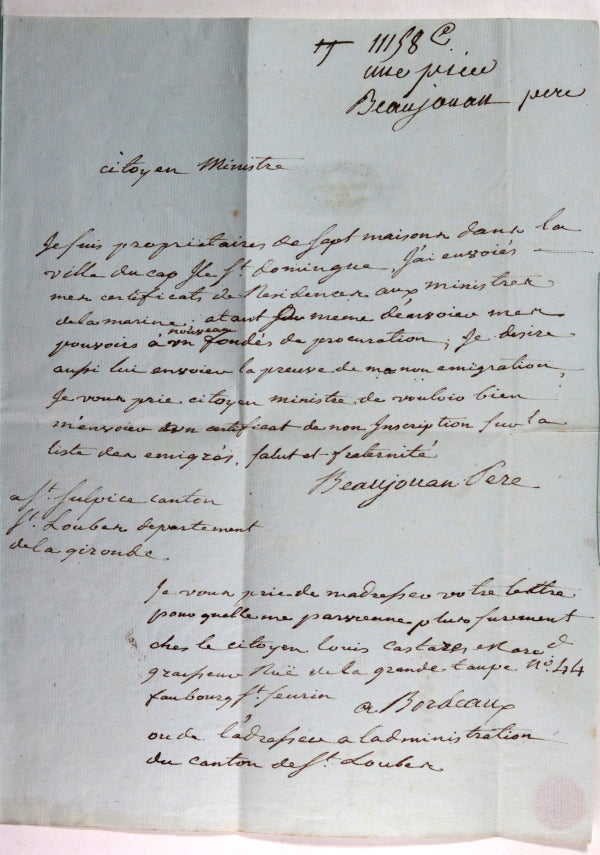 11158 C
une piece
Beaujouan pere
citoyen Ministre
Je suis proprietaires de Sept maisons dans la
ville du cap Ile St. domingue, J'ai envoiés
mes certificats de Residences aux ministres
de la marine; etant sur meme d'envoier mes
pouvoirs à un nouveau fondés de procuration, Je desire
aussi lui envoier la preuve de ma non emigration,
Je vous prie citoyen ministre de vouloir bien
m'envoier un certificat de non Inscription sur la
liste des emigrés. Salut et fraternité
Beaujouan Pere
a St. Sulpice canton
St. Loubes departement
de la gironde.
Je vous prie de madresser votre lettre
pour quelle me parvienne plus surement
ches le citoyen louis castares
graisseur Ruë de la grande taupe No. 44
faubourg St. seurin
a Bordeaux
ou de l'adresser a ladministration
du canton de St. Loubes